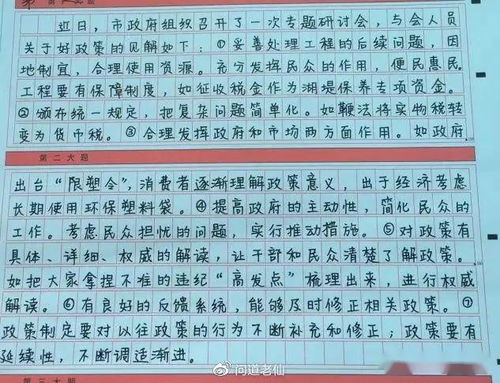 近日，市政府组织召开了一次专题研讨会，与会人员
关于好政策的见解如下：①妥善处理工程的后续问题，因
地制宜，合理使用资源。充分发挥民众的作用，便民惠民
工程要有保障制度，如征收税金作为湖堤保养专项资金。
②颁布统一规定，把复杂问题简单化。如鞭法将实物税转
变为货币税。③合理发挥政府和市场两方面作用。如政府
第二大题
出台“限塑令”，消费者逐渐理解政策意义，出于经济考虑
长期使用环保塑料袋。④提高政府的主动性，简化民众的
工作。考虑民众担忧的问题，实行推动措施。⑤对政策有
具体、详细、权威的解读，让干部和民众清楚了解政策。
如把大家拿捏不准的违纪“高发点”梳理出来，进行权威
解读。⑥有良好的反馈系统，能够及时修正相关政策。⑦
政策制定要对以往政策的行为不断补充和修正；政策要有
延续性，不断调适渐进。
@问道老仙
第三大题